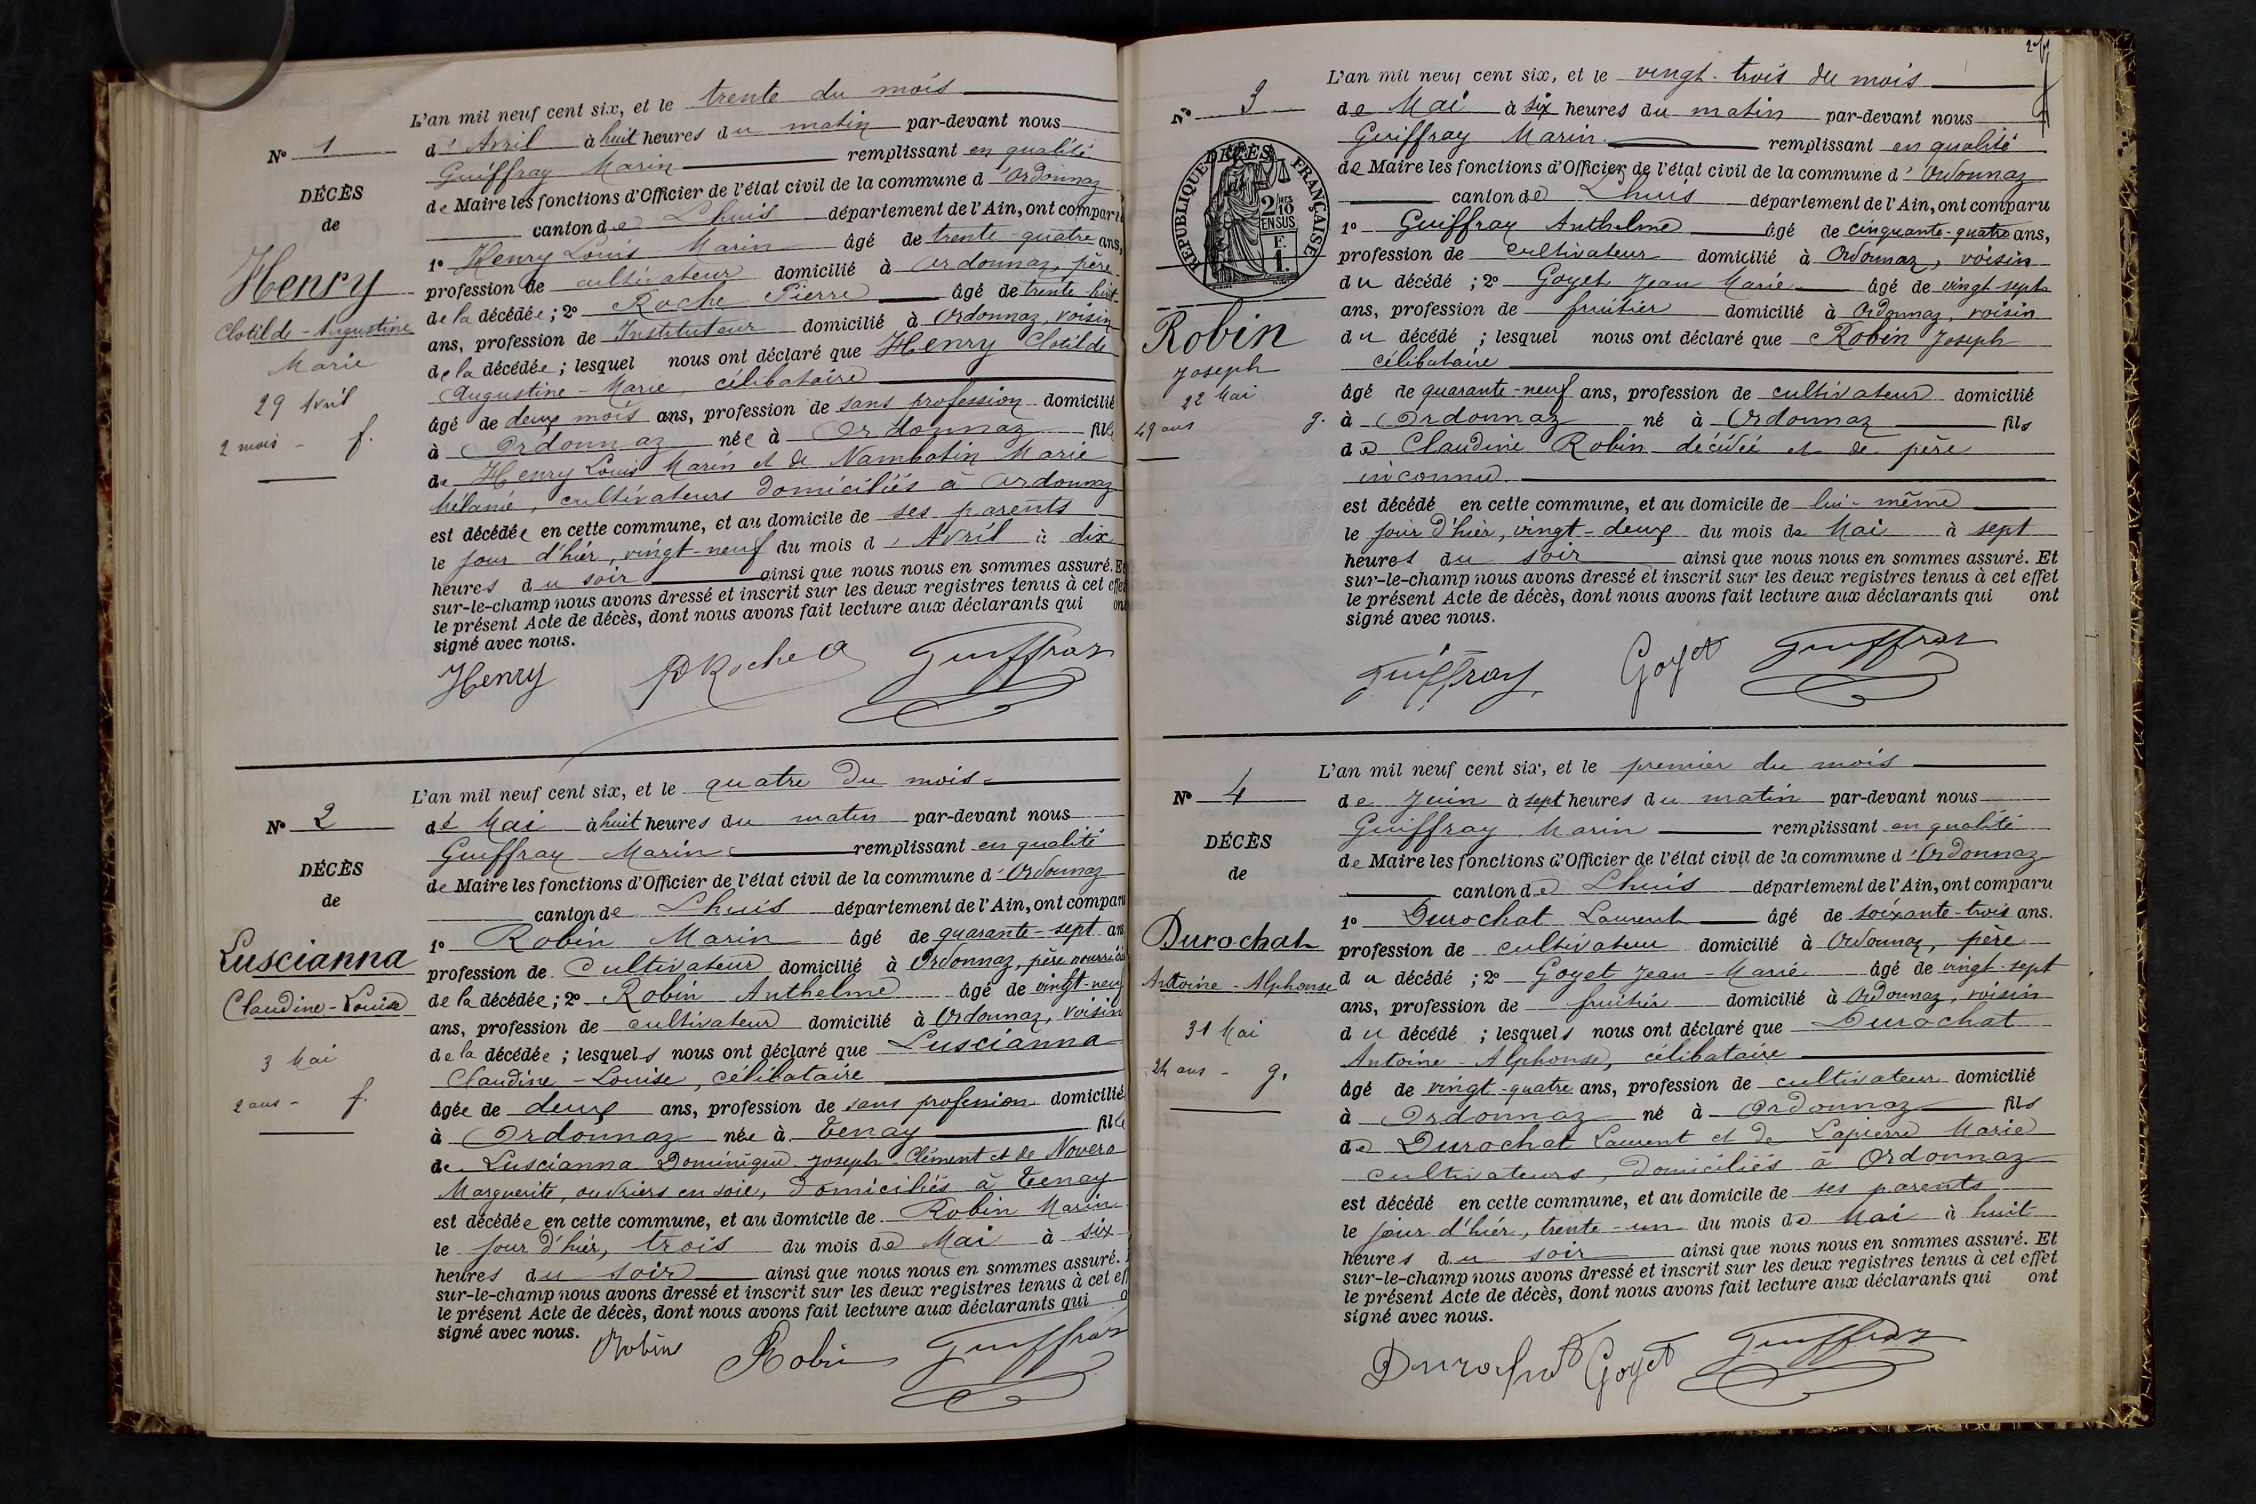 L'an mil neuf cent six, et le trente du mois
N° 1
d'Avril à huit heures du matin par-devant nous
Guiffray Marin remplissant en qualité
DÉCÈS
de Maire les fonctions d'Officier de l'état civil de la commune d'Ordonnaz
de
canton de Lhuis département de l'Ain, ont comparu
Henry
1° Henry Louis Marin âgé de trente-quatre ans,
profession de cultivateur domicilié à Ordonnaz, père
Clotilde-Augustine
de la décédée; 2° Roche Pierre âgé de trente huit
Marie
ans, profession de Instituteur domicilié à Ordonnaz, voisin
de la décédée; lesquel nous ont déclaré que Henry Clotilde
29 Avril
Augustine-Marie, célibataire
âgé de deux mois ans, profession de sans profession domicilié
2 mois - f.
à Ordonnaz née à Ordonnaz fille
de Henry Louis Marin et de Nambotin Marie
Mélanie, cultivateurs domiciliés à Ordonnaz
est décédée en cette commune, et au domicile de ses parents
le jour d'hier, vingt-neuf du mois d'Avril à dix
heures du soir ainsi que nous nous en sommes assuré. Et
sur-le-champ nous avons dressé et inscrit sur les deux registres tenus à cet effet
le présent Acte de décès, dont nous avons fait lecture aux déclarants qui ont
signé avec nous.
Henry PRoche Guiffray
L'an mil neuf cent six, et le quatre du mois
N° 2
de Mai à huit heures du matin par-devant nous
Guiffray Marin remplissant en qualité
DÉCÈS
de Maire les fonctions d'Officier de l'état civil de la commune d'Ordonnaz
de
canton de Lhuis département de l'Ain, ont comparu
Luscianna
1° Robin Marin âgé de quarante-sept ans
profession de Cultivateur domicilié à Ordonnaz, père nourricier
Claudine-Louise
de la décédée; 2° Robin Anthelme âgé de vingt-neuf
ans, profession de cultivateur domicilié à Ordonnaz, voisin
3 Mai
de la décédée; lesquels nous ont déclaré que Luscianna
Claudine-Louise, célibataire
2 ans - f.
âgée de deux ans, profession de sans profession domicilié
à Ordonnaz née à Tenay fille
de Luscianna Dominique Joseph-Clément et de Novero
Marguerite, ouvriers en soie, domiciliés à Tenay
est décédée en cette commune, et au domicile de Robin Marin
le jour d'hier, trois du mois de Mai à six
heures du soir ainsi que nous nous en sommes assuré.
sur-le-champ nous avons dressé et inscrit sur les deux registres tenus à cet eff
le présent Acte de décès, dont nous avons fait lecture aux déclarants qui o
signé avec nous.
Robin Robin Guiffray
L'an mil neuf cent six, et le vingt-trois du mois
N° 3
de Mai à six heures du matin par-devant nous
Guiffray Marin remplissant en qualité
RÉPUBLIQUE FRANÇAISE
DÉCÈS
2/10 EN SUS
F. 1.
de Maire les fonctions d'Officier de l'état civil de la commune d'Ordonnaz
canton de Lhuis département de l'Ain, ont comparu
1° Guiffray Anthelme âgé de cinquante-quatre ans,
profession de cultivateur domicilié à Ordonnaz, voisin
du décédé; 2° Goyet Jean Marie âgé de vingt-sept
ans, profession de fruitier domicilié à Ordonnaz, voisin
Robin
du décédé; lesquel nous ont déclaré que Robin Joseph
Joseph
célibataire
22 Mai
âgé de quarante-neuf ans, profession de cultivateur domicilié
49 ans g.
à Ordonnaz né à Ordonnaz fils
de Claudine Robin décédée et de père
inconnu
est décédé en cette commune, et au domicile de lui-même
le jour d'hier, vingt-deux du mois de Mai à sept
heures du soir ainsi que nous nous en sommes assuré. Et
sur-le-champ nous avons dressé et inscrit sur les deux registres tenus à cet effet
le présent Acte de décès, dont nous avons fait lecture aux déclarants qui ont
signé avec nous.
Guiffray Goyet Guiffray
L'an mil neuf cent six, et le premier du mois
N° 4
de Juin à sept heures du matin par-devant nous
Guiffray Marin remplissant en qualité
DÉCÈS
de Maire les fonctions d'Officier de l'état civil de la commune d'Ordonnaz
de
canton de Lhuis département de l'Ain, ont comparu
1° Durochat Laurent âgé de soixante-trois ans.
Durochat
profession de cultivateur domicilié à Ordonnaz, père
Antoine-Alphonse
du décédé; 2° Goyet Jean-Marie âgé de vingt-sept
ans, profession de fruitier domicilié à Ordonnaz, voisin
31 Mai
du décédé; lesquels nous ont déclaré que Durochat
Antoine-Alphonse, célibataire
24 ans - g.
âgé de vingt-quatre ans, profession de cultivateur domicilié
à Ordonnaz né à Ordonnaz fils
de Durochat Laurent et de Lapierre Marie
cultivateurs, domiciliés à Ordonnaz
est décédé en cette commune, et au domicile de ses parents
le jour d'hier, trente-un du mois de Mai à huit
heures du soir ainsi que nous nous en sommes assuré. Et
sur-le-champ nous avons dressé et inscrit sur les deux registres tenus à cet effet
le présent Acte de décès, dont nous avons fait lecture aux déclarants qui ont
signé avec nous.
Durochat Goyet Guiffray